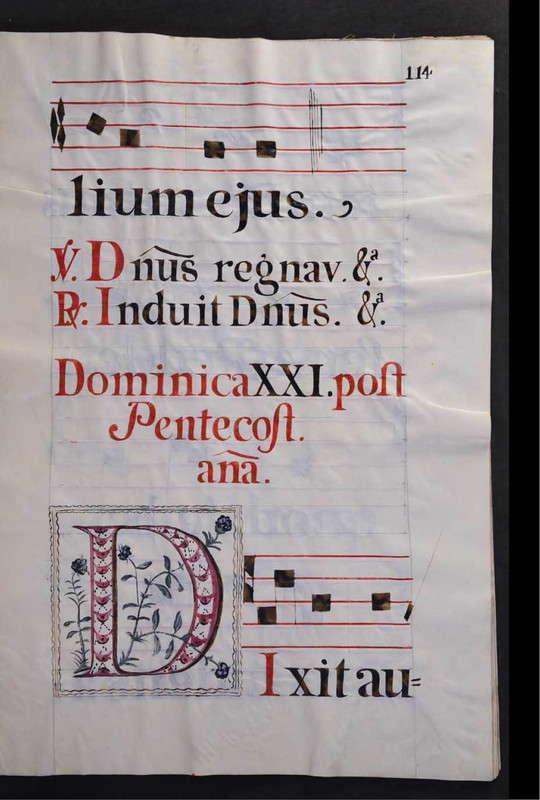 114.
lium ejus.
℣. Dnūs regnav. &ᵃ.
℟. Induit Dnūs. &ᵃ.
Dominica XXI. poſt
Pentecoſt.
anā.
DIxit au=